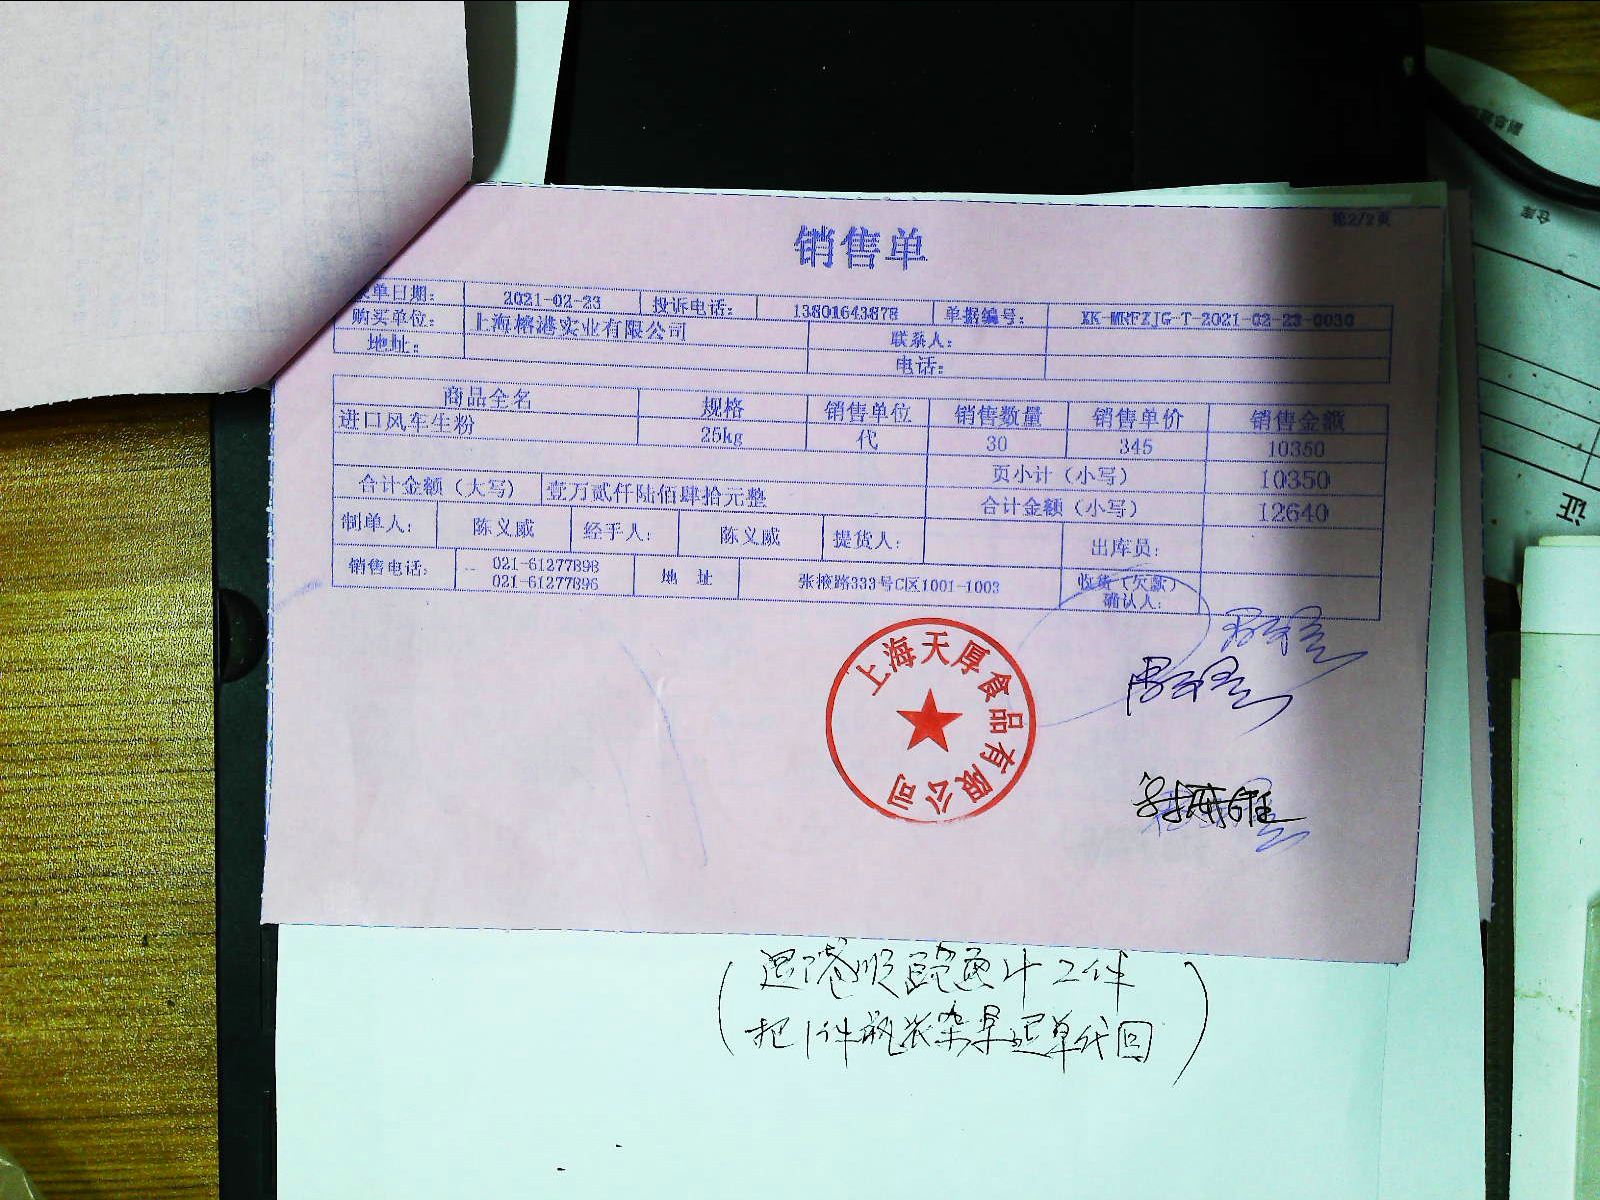 第2/2页
销售单
录单日期： 2021-02-23 投诉电话： 13801643878 单据编号： XK-MRFZJG-T-2021-02-23-0030
购买单位： 上海榕港实业有限公司 联系人：
地址： 电话：
商品全名 规格 销售单位 销售数量 销售单价 销售金额
进口风车生粉 25kg 代 30 345 10350
页小计（小写） 10350
合计金额（大写） 壹万贰仟陆佰肆拾元整 合计金额（小写） 12640
制单人： 陈义威 经手人： 陈义威 提货人： 出库员：
销售电话： 021-61277898 地 址 张掖路333号C区1001-1003 收货（欠款）
021-61277896 确认人：
上海天厚食品有限公司
2件
把1件瓶装 单代回
仓库
证